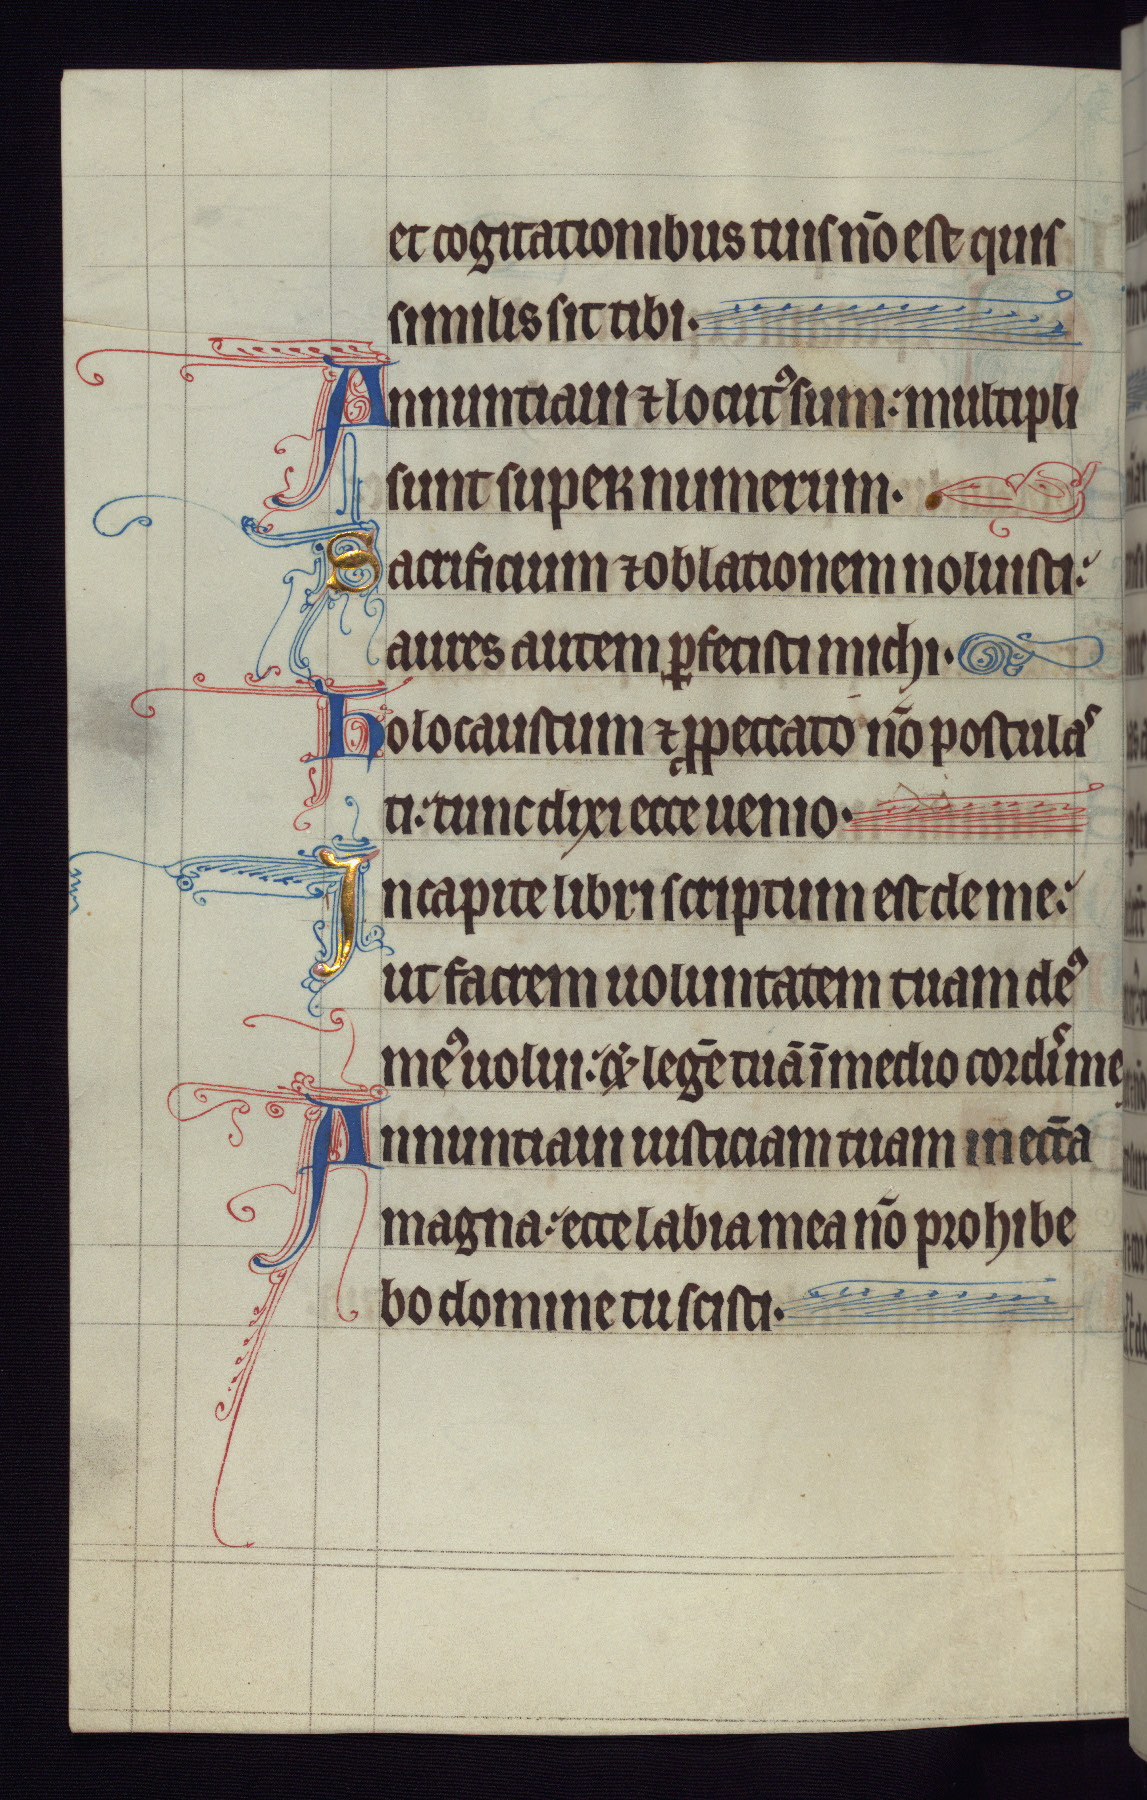 et cogitationibus tuis nō est quis
similis sit tibi.
Annuntiaui ⁊ locutꝰ sum: multipli
sunt super numerum.
Sacrificium ⁊ oblationem noluisti:
aures autem ꝑfecisti michi.
Holocaustum ⁊ ꝓ peccato nō postulaˢ
ti: tunc dixi ecce uenio.
In capite libri scriptum est de me:
ut facrem uoluntatem tuam deꝰ
meꝰ uolui: ⁊ legē tuā ī medio cordiˢ mei
Annuntiaui iusticiam tuam in ecc̄a
magna: ecce labia mea nō prohibe
bo domine tu scisti.